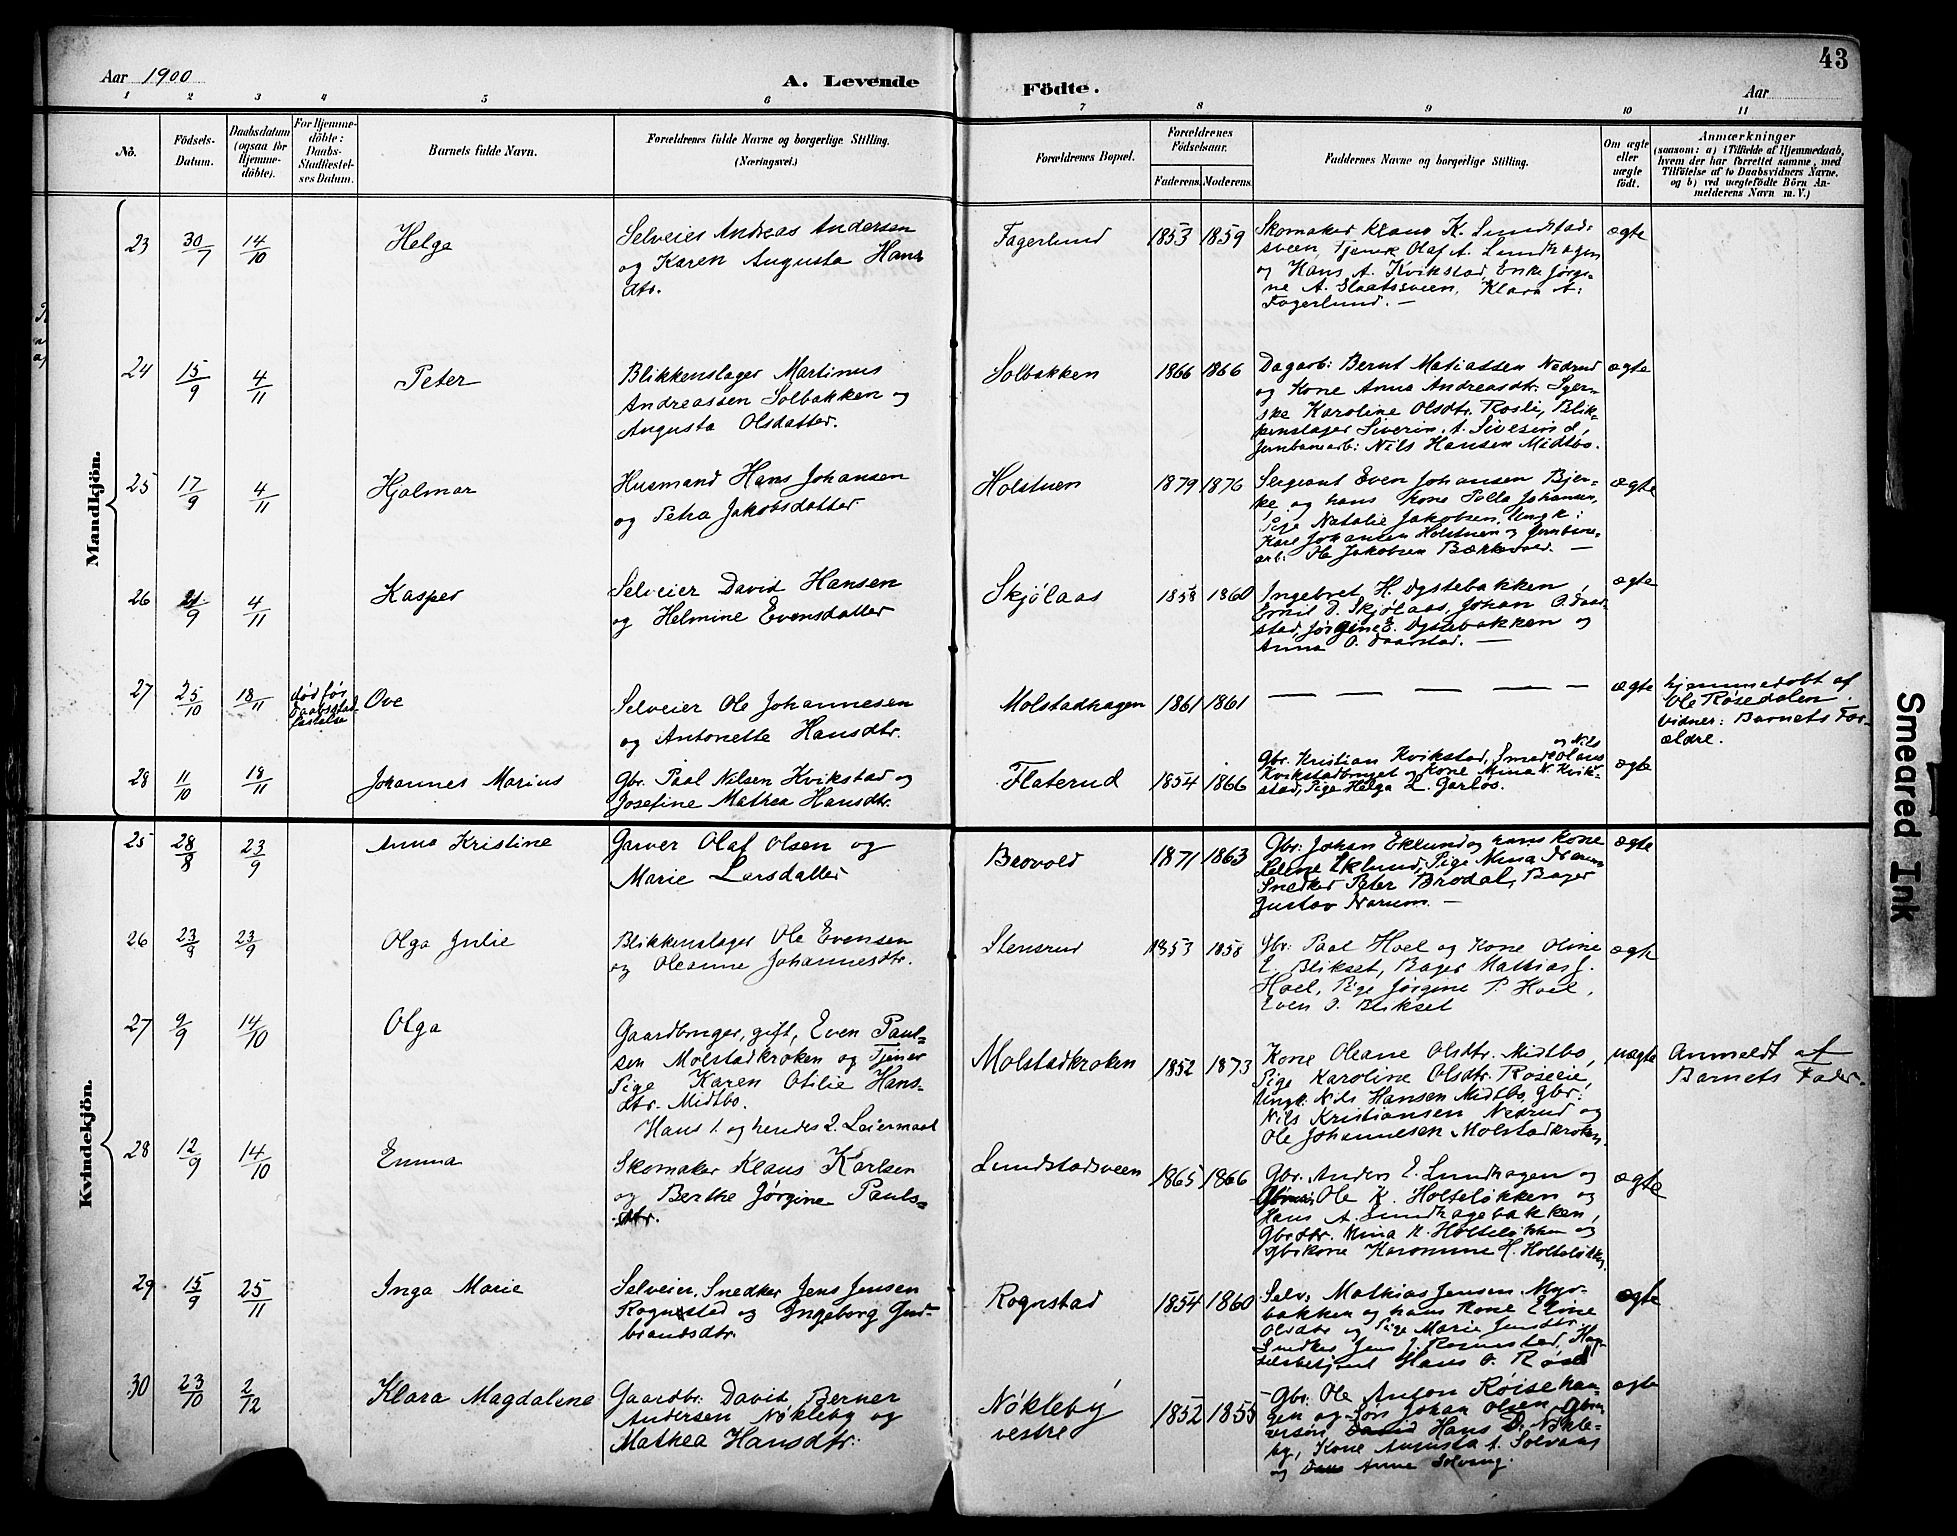 43
Aar 1900
A. Levende
Födte.
Aar
1 2 3 4 5 6 7 8 9 10 11
No.
Födsels-
Datum.
Daabsdatum
(ogsaa for
Hjemme-
döbte).
For Hjemme-
döbte:
Daabs-
Stadfæstel-
ses Datum.
Barnets fulde Navn.
Forældrenes fulde Navne og borgerlige Stilling.
(Næringsvei.)
Forældrenes Bopæl.
Forældrenes
Födselsaar.
Faderens.
Moderens.
Faddernes Navne og borgerlige Stilling.
Om ægte
eller
uægte
født.
Anmærkninger
(saasom: a) i Tilfælde af Hjemmedaab,
hvem der har forrettet samme, med
Tilföielse af to Daabsvidners Navne,
og b) ved uægtefödte Börn An-
melderens Navn m. V.)
Mandkjön.
23 30/7 14/10 Helga
Selveier Andreas Andersen
og Karen Augusta Hans
dtr.
Fagerlund 1853 1859
Skomaker Klaus K. Lundstad-
sveen, Tjener Olaf A. Lundhagen
og Hans A. Kvikstad, Enke Jørgi-
ne A. Slaatsveen, Klara A.
Fagerlund. —
ægte
24 15/9 4/11 Peter
Blikkenslager Martinus
Andreassen Solbakken og
Augusta Olsdatter.
Solbakken 1866 1866
Dagarb: Bernt Matiassen Nedrud
og Kone Anna Andreasdtr. Syer-
ske Karoline Olsdtr. Rosli, Blik-
kenslager Siverin A. Sivesind,
Jernbanearb: Nils Hansen Midtbo.
ægte
25 17/9 4/11 Hjalmar
Husmand Hans Johansen
og Petra Jakobsdatter
Holstuen 1879 1876
Sergeant Even Johansen Bjer-
ke og hans Kone Polla Johansen,
Pige Natalie Jakobsen, Ungk:
Karl Johansen Holstuen og Jernbane-
arb: Ole Jakobsen Bækkevold. —
ægte
26 21/9 4/11 Kasper
Selveier David Hansen
og Helmine Evensdatter
Skjölaas 1858 1860
Ingebret H. Dystebakken,
Ernil D. Skjølaas, Johan O. Daar-
stad, Jørgine E. Dystebakken og
Anna O. Daarstad. —
ægte
27 25/10 18/11
død før
Daabsstad-
festelse
Ove
Selveier Ole Johannesen
og Antonette Hansdtr.
Molstadhagen 1861 1861
— — — — — —
ægte
hjemmedøbt af
Ole Røsedalen.
Vidner: Barnets For-
ældre.
28 11/10 18/11 Johannes Marius
Gbr. Paal Nilsen Kvikstad og
Josefine Mathea Hansdtr.
Flaterud 1854 1866
og Nils
Gbr. Kristian Kvikstad, Smed Olaus
Kvikstadbruget og Kone Mina N. Kvik-
stad, Pige Helga L. Garlos.
ægte
Kvindekjön.
25 28/8 23/9 Anna Kristine
Garver Olaf Olsen og
Marie Larsdatter
Brovold 1871 1863
Gbr: Johan Eklund og hans Kone
Helene Eklund, Pige Nina Narum
Snedker Peter Brodal, Bager
Gustav Narum. —
ægte
26 23/9 23/9 Olga Julie
Blikkenslager Ole Evensen
og Oleanne Johannesdtr.
Stensrud 1853 1858
Gbr: Paal Hoel og Kone Oline
E. Blikset, Bager Mathias J.
Hoel, Pige Jørgine P. Hoel,
Even O. Blikset
ægte
27 9/9 14/10 Olga
Gaardbruger, gift, Even Paul-
sen Molstadkroken og Tjener
Pige Karen Otilie Hans-
dtr. Midtbo.
Hans 1. og hendes 2. Leiermaal
Molstadkroken 1852 1873
Kone Oleane Olsdtr. Midtbo,
Pige Karoline Olsdtr. Roselie,
Ungk: Nils Hansen Midtbo, Gbr:
Nils Kristiansen Nedrud og
Ole Johannesen Molstadkroken.
uægte
Anmeldt af
Barnets Fader.
28 12/9 14/10 Emma
Skomaker Klaus Karlsen
og Berthe Jørgine Pauls-
dtr.
Lundstadsveen 1865 1866
Gbr. Anders E. Lundhagen og
Ole K. Holteløkken og
Hans A. Lundhagebakken,
Gbrdtr. Mina K. Holteløkken og
Gbrkone Karomine H. Holteløkken
ægte
29 15/9 25/11 Inga Marie
Selveier, Snedker Jens Jensen
Rognstad og Ingeborg Gud-
brandsdtr.
Rognstad 1854 1860
Selv: Mathias Jensen Myr-
bakken og hans Kone Eline
Olsdtr og Pige Marie Jensdtr.
Snedker Jens J. Rognstad,
Hans O. Røse
ægte
30 23/10 2/12 Klara Magdalene
Gaardbr: David Berner
Andersen Nøkleby og
Mathea Hansdtr.
Nøkleby
vestre 1852 1855
Gbr. Ole Anton Røisehau-
gen og Søn Johan Olsen,
Hans D. Nøkle-
by, Kone Augusta A. Solvang
og Anne Solvang.
ægte
Smeared Ink